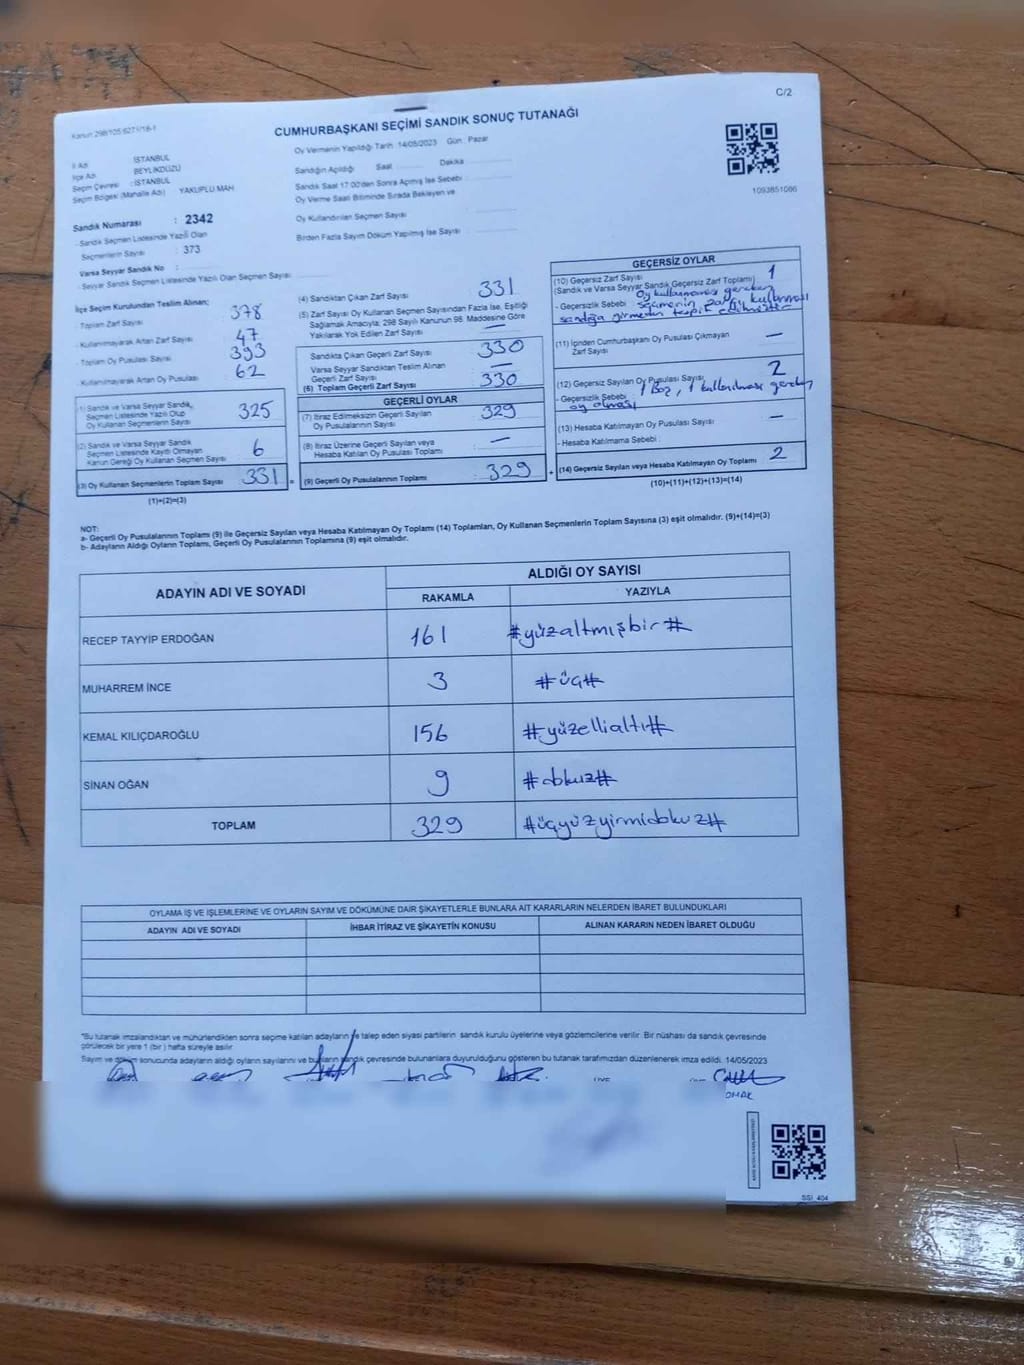 C/2
Kanun 298/105 6271/18-1
CUMHURBAŞKANI SEÇİMİ SANDIK SONUÇ TUTANAĞI
İl Adı İSTANBUL
İlçe Adı BEYLİKDÜZÜ
Seçim Çevresi : İSTANBUL
Seçim Bölgesi (Mahalle Adı) YAKUPLU MAH
Oy Vermenin Yapıldığı Tarih 14/05/2023 Gün : Pazar
Sandığın Açıldığı Saat Dakika
Sandık Saat 17.00'den Sonra Açılmış İse Sebebi :
Oy Verme Saat Bitiminde Sırada Bekleyen ve
Oy Kullandırılan Seçmen Sayısı :
Birden Fazla Sayım Döküm Yapılmış İse Sayısı :
1093851066
Sandık Numarası : 2342
- Sandık Seçmen Listesinde Yazılı Olan
Seçmenlerin Sayısı : 373
Varsa Seyyar Sandık No :
- Seyyar Sandık Seçmen Listesinde Yazılı Olan Seçmen Sayısı :
İlçe Seçim Kurulundan Teslim Alınan;
- Toplam Zarf Sayısı 378
- Kullanılmayarak Artan Zarf Sayısı 47
- Toplam Oy Pusulası Sayısı 393
- Kullanılmayarak Artan Oy Pusulası 62
(1) Sandık ve Varsa Seyyar Sandık
Seçmen Listesinde Yazılı Olup
Oy Kullanan Seçmen Sayısı 325
(2) Sandık ve Varsa Seyyar Sandık
Seçmen Listesinde Kayıtlı Olmayan
Kanun Gereği Oy Kullanan Seçmen Sayısı 6
(3) Oy Kullanan Seçmenlerin Toplam Sayısı 331
(1)+(2)=(3)
(4) Sandıktan Çıkan Zarf Sayısı 331
(5) Zarf Sayısı Oy Kullanan Seçmen Sayısından Fazla İse, Eşitliği
Sağlamak Amacıyla, 298 Sayılı Kanunun 98. Maddesine Göre
Yakılarak Yok Edilen Zarf Sayısı : —
Sandıkta Çıkan Geçerli Zarf Sayısı : 330
Varsa Seyyar Sandıktan Teslim Alınan
Geçerli Zarf Sayısı : —
(6) Toplam Geçerli Zarf Sayısı 330
GEÇERLİ OYLAR
(7) İtiraz Edilmeksizin Geçerli Sayılan
Oy Pusulasının Sayısı : 329
(8) İtiraz Üzerine Geçerli Sayılan veya
Hesaba Katılan Oy Pusulası Toplamı : —
(9) Geçerli Oy Pusulalarının Toplamı : 329
GEÇERSİZ OYLAR
(10) Geçersiz Zarf Sayısı 1
(Sandık ve Varsa Seyyar Sandık Geçersiz Zarf Toplamı)
- Geçersizlik Sebebi : Oy kullanmaması gereken
seçmenin zarfı kullanması
sandığa girmeden tespit edilmiştir
(11) İçinden Cumhurbaşkanı Oy Pusulası Çıkmayan
Zarf Sayısı —
(12) Geçersiz Sayılan Oy Pusulası Sayısı 2
- Geçersizlik Sebebi : 1 Boş, 1 kullanılması gereken
oy olması
(13) Hesaba Katılmayan Oy Pusulası Sayısı : —
- Hesaba Katılmama Sebebi :
(14) Geçersiz Sayılan veya Hesaba Katılmayan Oy Toplamı 2
(10)+(11)+(12)+(13)=(14)
NOT:
a- Geçerli Oy Pusulalarının Toplamı (9) ile Geçersiz Sayılan veya Hesaba Katılmayan Oy Toplamı (14) Toplamları, Oy Kullanan Seçmenlerin Toplam Sayısına (3) eşit olmalıdır. (9)+(14)=(3)
b- Adayların Aldığı Oyların Toplamı, Geçerli Oy Pusulalarının Toplamına (9) eşit olmalıdır.
ADAYIN ADI VE SOYADI ALDIĞI OY SAYISI
RAKAMLA YAZIYLA
RECEP TAYYİP ERDOĞAN 161 #yüzaltmışbir#
MUHARREM İNCE 3 #üç#
KEMAL KILIÇDAROĞLU 156 #yüzellialtı#
SİNAN OĞAN 9 #dokuz#
TOPLAM 329 #üçyüzyirmidokuz#
OYLAMA İŞ VE İŞLEMLERİNE VE OYLARIN SAYIM VE DÖKÜMÜNE DAİR ŞİKAYETLERLE BUNLARA AİT KARARLARIN NELERDEN İBARET BULUNDUKLARI
ADAYIN ADI VE SOYADI İHBAR İTİRAZ VE ŞİKAYETİN KONUSU ALINAN KARARIN NEDEN İBARET OLDUĞU
*Bu tutanak imzalandıktan ve mühürlendikten sonra seçime katılan adayların ve talep eden siyasi partilerin sandık kurulu üyelerine veya gözlemcilerine verilir. Bir nüshası da sandık çevresinde
görülecek bir yere 1 (bir) hafta süreyle asılır
Sayım ve döküm sonucunda adayların aldığı oyların sayılarını ve bunların sandık çevresinde bulunanlara duyurulduğunu gösteren bu tutanak tarafımızdan düzenlenerek imza edildi. 14/05/2023
SSİ 404